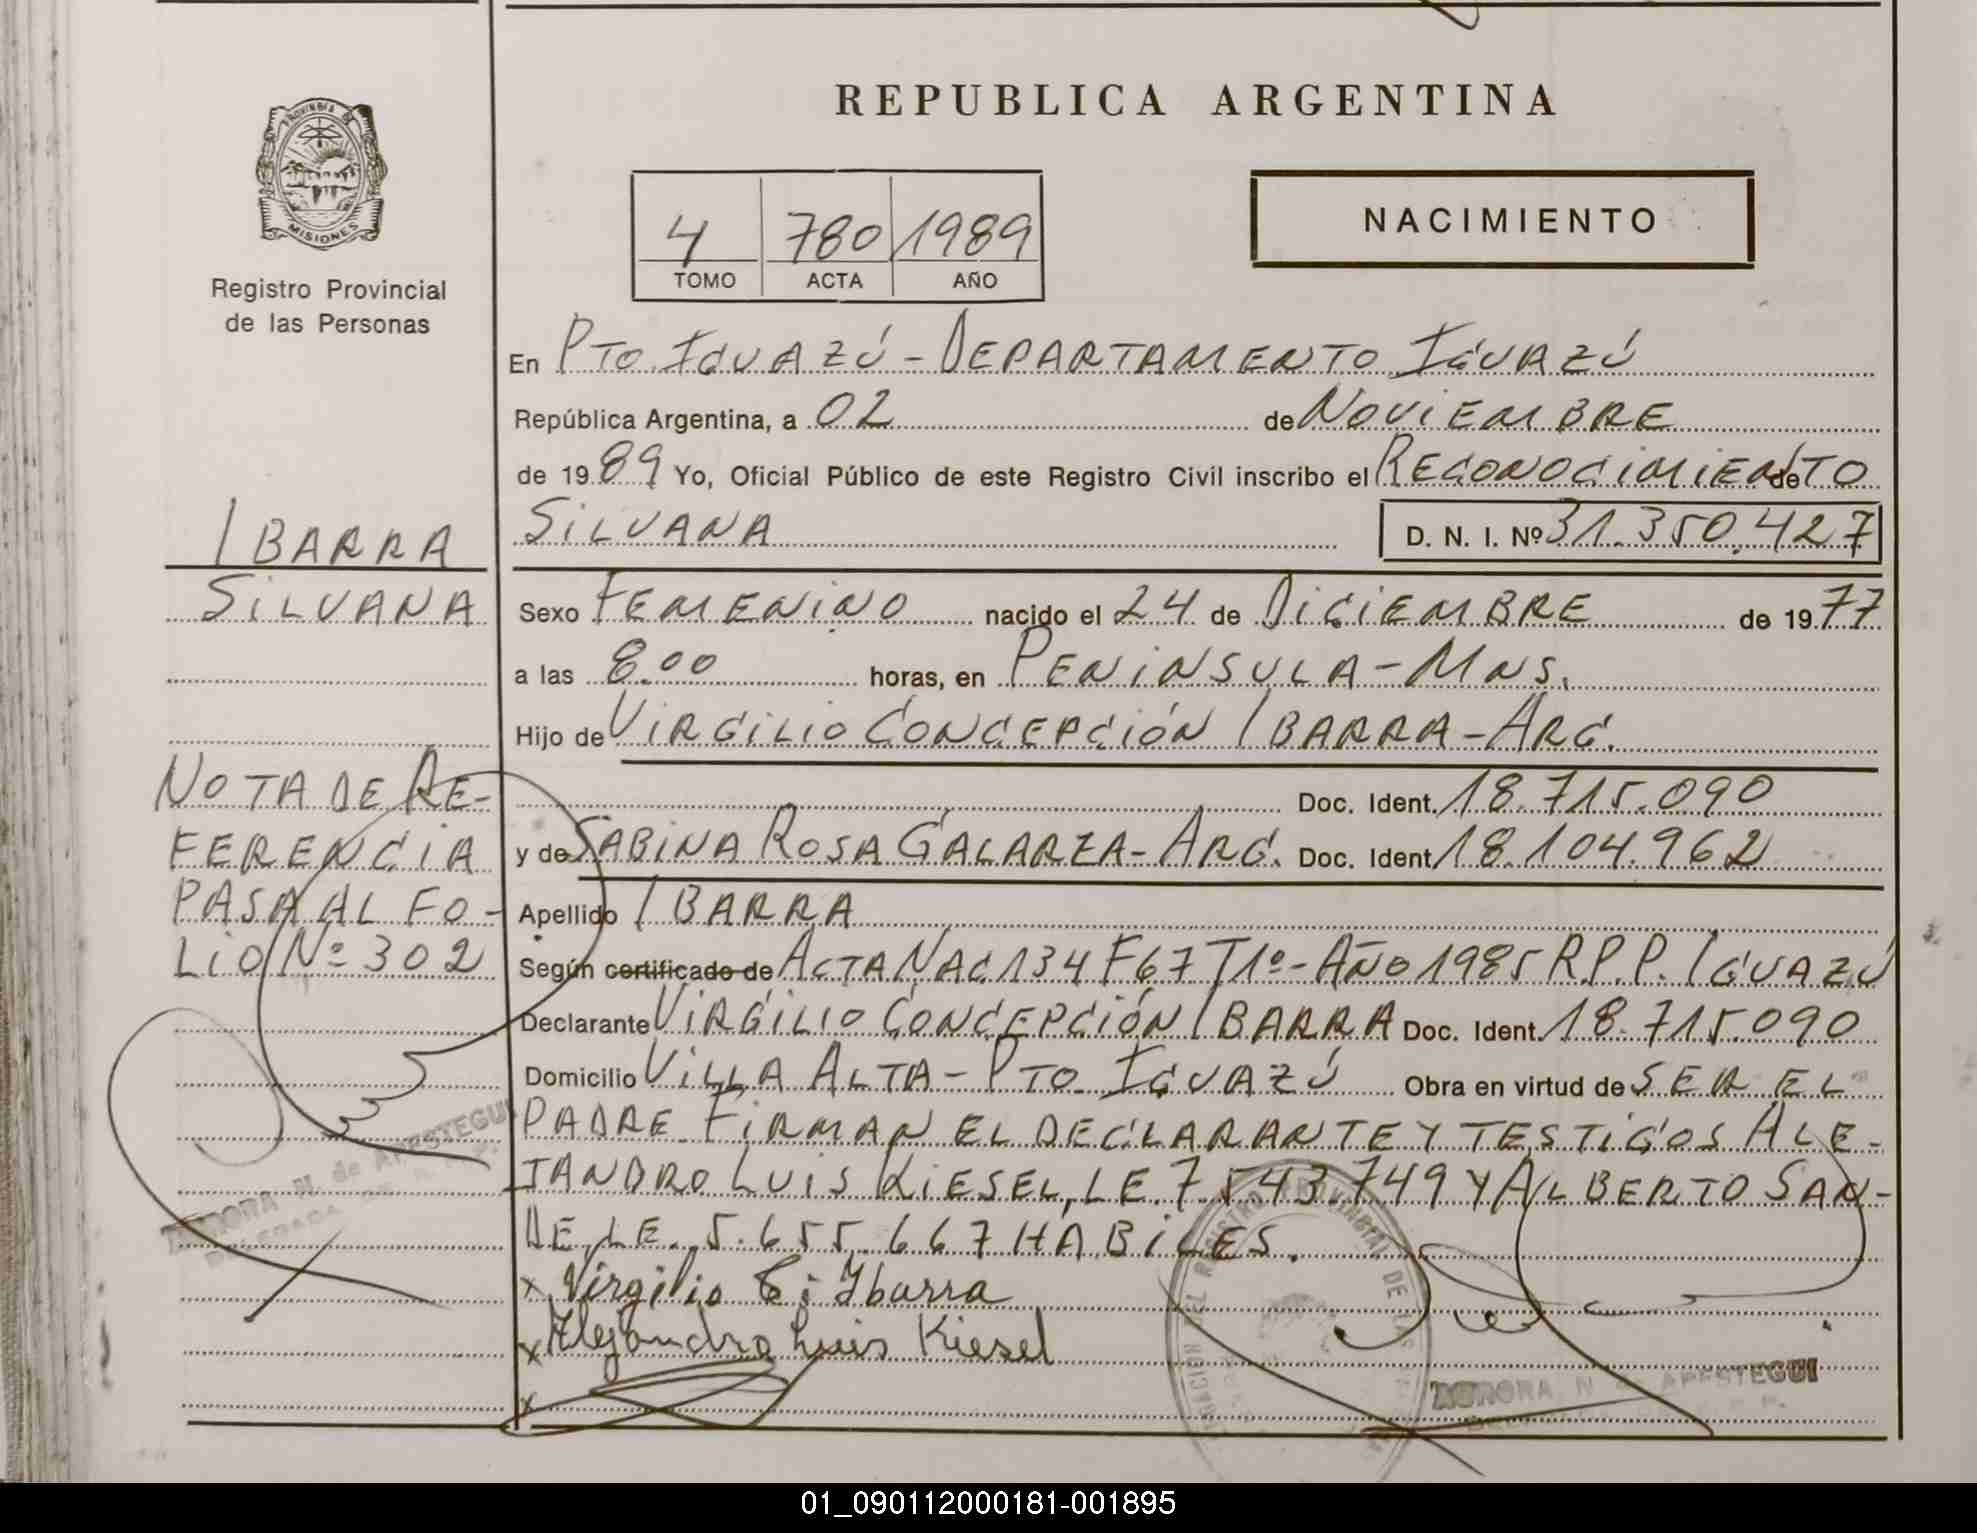 REPUBLICA ARGENTINA
PROVINCIA DE
MISIONES
Registro Provincial
de las Personas
4 780 1989
TOMO ACTA AÑO
NACIMIENTO
En PTO. IGUAZÚ - DEPARTAMENTO IGUAZÚ
República Argentina, a 02 de NOVIEMBRE
de 1989 Yo, Oficial Público de este Registro Civil inscribo el RECONOCIMIENTO de
SILVANA D. N. I. Nº 31.350.427
IBARRA
SILVANA
Sexo FEMENINO nacido el 24 de DICIEMBRE de 1977
a las 8.00 horas, en PENINSULA - MNS.
Hijo de VIRGILIO CONCEPCIÓN IBARRA - ARG.
Doc. Ident. 18.715.090
y de SABINA ROSA GALARZA - ARG. Doc. Ident 18.104.962
NOTA DE RE-
FERENCIA
PASA AL FO-
LIO Nº 302
Apellido IBARRA
Según certificado de ACTA NAC 134 F67 T1º - AÑO 1985 R.P.P. IGUAZÚ
Declarante VIRGILIO CONCEPCIÓN IBARRA Doc. Ident. 18.715.090
Domicilio VILLA ALTA - PTO IGUAZÚ Obra en virtud de SER EL
PADRE. FIRMAN EL DECLARANTE Y TESTIGOS ALE-
JANDRO LUIS KIESEL, LE. 7.543.749 Y ALBERTO SAN-
DE, LE. 5.655.667 HABILES.
x Virgilio C. Ibarra
x Alejandro Luis Kiesel
x
AURORA N. de APESTEGUI
AURORA N. de APESTEGUI
01_090112000181-001895